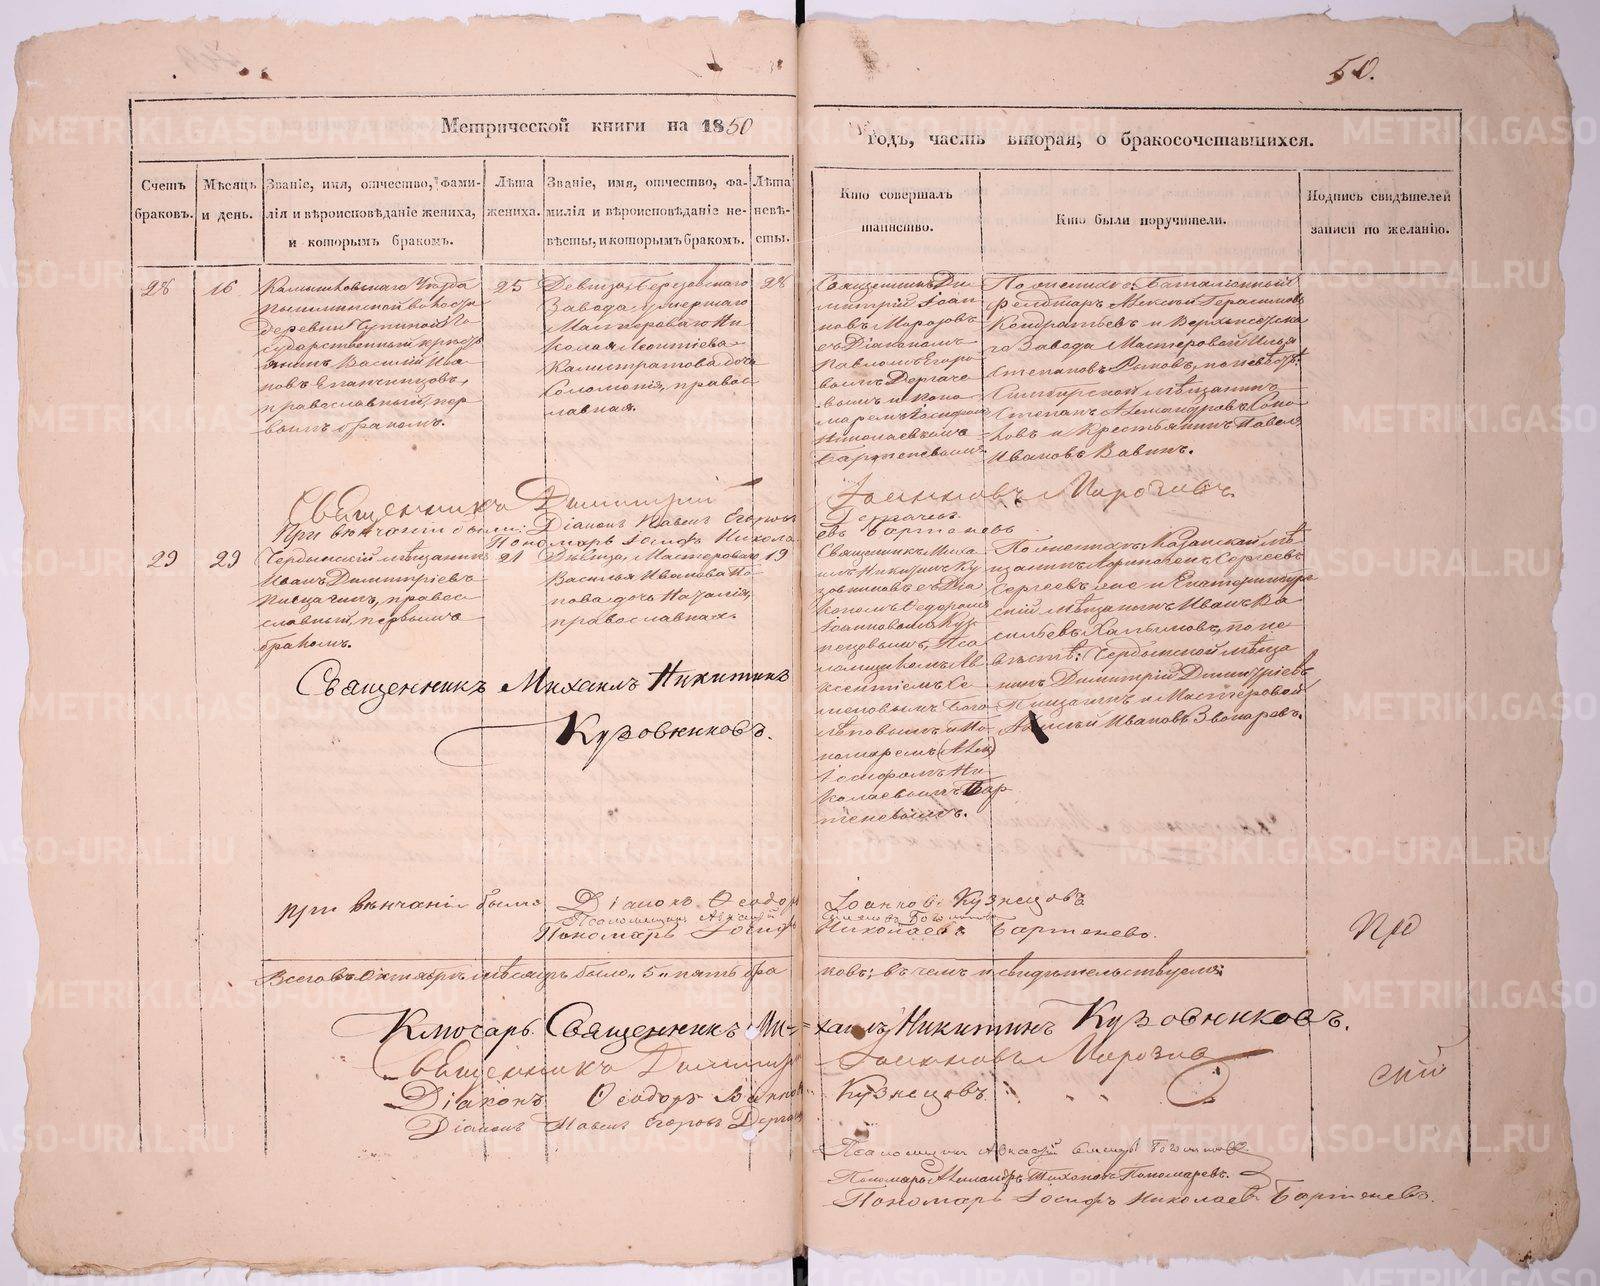 50.
Метрической книги на 1850
годъ, часть вторая, о бракосочетавшихся.
Счетъ браковъ.
Мѣсяцъ и день.
Званіе, имя, отчество, фами-
лія и вѣроисповѣданіе жениха,
и которымъ бракомъ.
Лѣта
жениха.
Званіе, имя, отчество, фа-
милія и вѣроисповѣданіе не-
вѣсты, и которымъ бракомъ.
Лѣта
невѣ-
сты.
Кто совершалъ
таинство.
Кто были поручители.
Подпись свидѣтелей
записи по желанію.
28
16
волости
деревни
сударственный кресть
янинъ Василій Ива
новъ Епанчинцовъ,
православный, пер
вымъ бракомъ.
25
Девица, Березовскаго
Завода умершаго
Мастероваго Ни
колая Леонтіева
Калистратова дочь
Соломонія, правос
лавная.
28
Священникъ Ди
митрій Іоан
новъ Морозовъ
съ Діакономъ
Павломъ Егоро
вымъ Дергаче
вымъ и Поно
маремъ Іосифомъ
Николаевымъ
Бартеневымъ
По женихѣ: Баталіонный
фельдшеръ Алексѣй Герасимовъ
Кондратьевъ и Верхъисетска
го Завода Мастеровой Илья
Степановъ Рыковъ, по невѣстѣ:
Симбирской мѣщанинъ
Степанъ Александровъ Соко
ловъ и Крестьянинъ Павелъ
Ивановъ Вавинъ.
Священникъ Димитрій Іоанновъ Морозовъ.
При вѣнчаніи были: Діаконъ Павелъ Егоровъ Дергачевъ
Пономарь Іосифъ Никола евъ Бартеневъ
29
29
Чердынскій мѣщанинъ
Иванъ Димитріевъ
православный, первымъ
бракомъ.
21
Дѣвица, Мастероваго
Василья Иванова По
пова дочь Наталія,
православная.
19
Священникъ Миха
илъ Никитинъ Ку
зовниковъ съ Діа
кономъ Федоромъ
Іоанновымъ Куз
нецовымъ, Пса
ломщикомъ Ав
ксентіемъ Се
меновымъ Бого
лѣповымъ и По
номаремъ
Іосифомъ Ни
колаевымъ Бар
теневымъ.
По женихѣ: Казанской мѣ
щанинъ Ларионъ Сергеевъ
Сергеевъ же и Екатеринбург
скій мѣщанинъ Иванъ Ва
сильевъ по не
вѣстѣ: Чердынской мѣща
нинъ Димитрій Димитріевъ
и Мастеровой
Ивановъ Звонаревъ.
Священникъ Михаилъ Никитинъ
Кузовниковъ.
При вѣнчаніи были Діаконъ Ѳеодоръ Іоанновъ Кузнецовъ
Псаломщикъ
Пономарь Іосифъ Николаевъ Бартеневъ.
Про
Всего въ Октябрѣ мѣсяцѣ было „5„ пять бра
ковъ; въ чемъ и свидѣтельствуемъ:
Ключарь Священникъ Михаилъ Никитинъ Кузовниковъ.
Священникъ Димитрій Іоанновъ Морозовъ
Діаконъ Ѳеодоръ Іоанновъ Кузнецовъ
Діаконъ Павелъ Егоровъ Дергачевъ
Пономарь Александръ Тихоновъ Пономаревъ.
Пономарь Іосифъ Николаевъ Бартеневъ.
METRIKI.GASO-URAL.RU